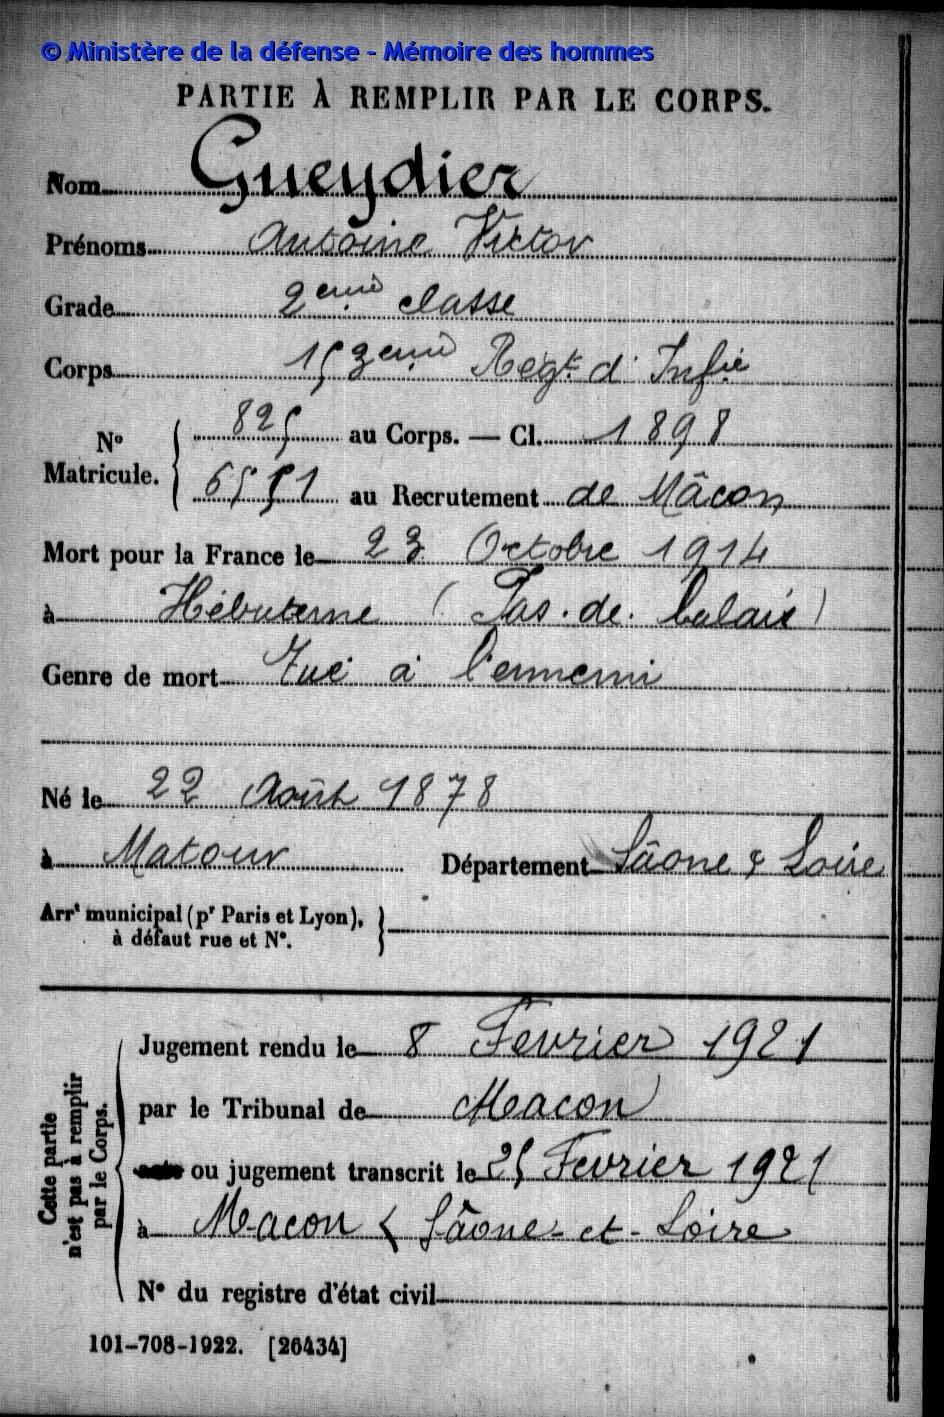 © Ministère de la défense - Mémoire des hommes
PARTIE À REMPLIR PAR LE CORPS.
Nom Gueydier
Prénoms Antoine Victor
Grade 2eme classe
Corps 153eme Régt d'Infie
No Matricule. 825 au Corps. — Cl. 1898
6551 au Recrutement de Mâcon
Mort pour la France le 23 Octobre 1914
à Hébuterne (Pas-de-Calais)
Genre de mort Tué à l'ennemi
Né le 22 Août 1878
à Matour Département Saône & Loire
Arrt municipal (pr Paris et Lyon),
à défaut rue et No.
Cette partie
n'est pas à remplir
par le Corps.
Jugement rendu le 8 Fevrier 1921
par le Tribunal de Macon
acte ou jugement transcrit le 25 Fevrier 1921
à Macon (Sâone-et-Loire
No du registre d'état civil
101-708-1922. [26434]